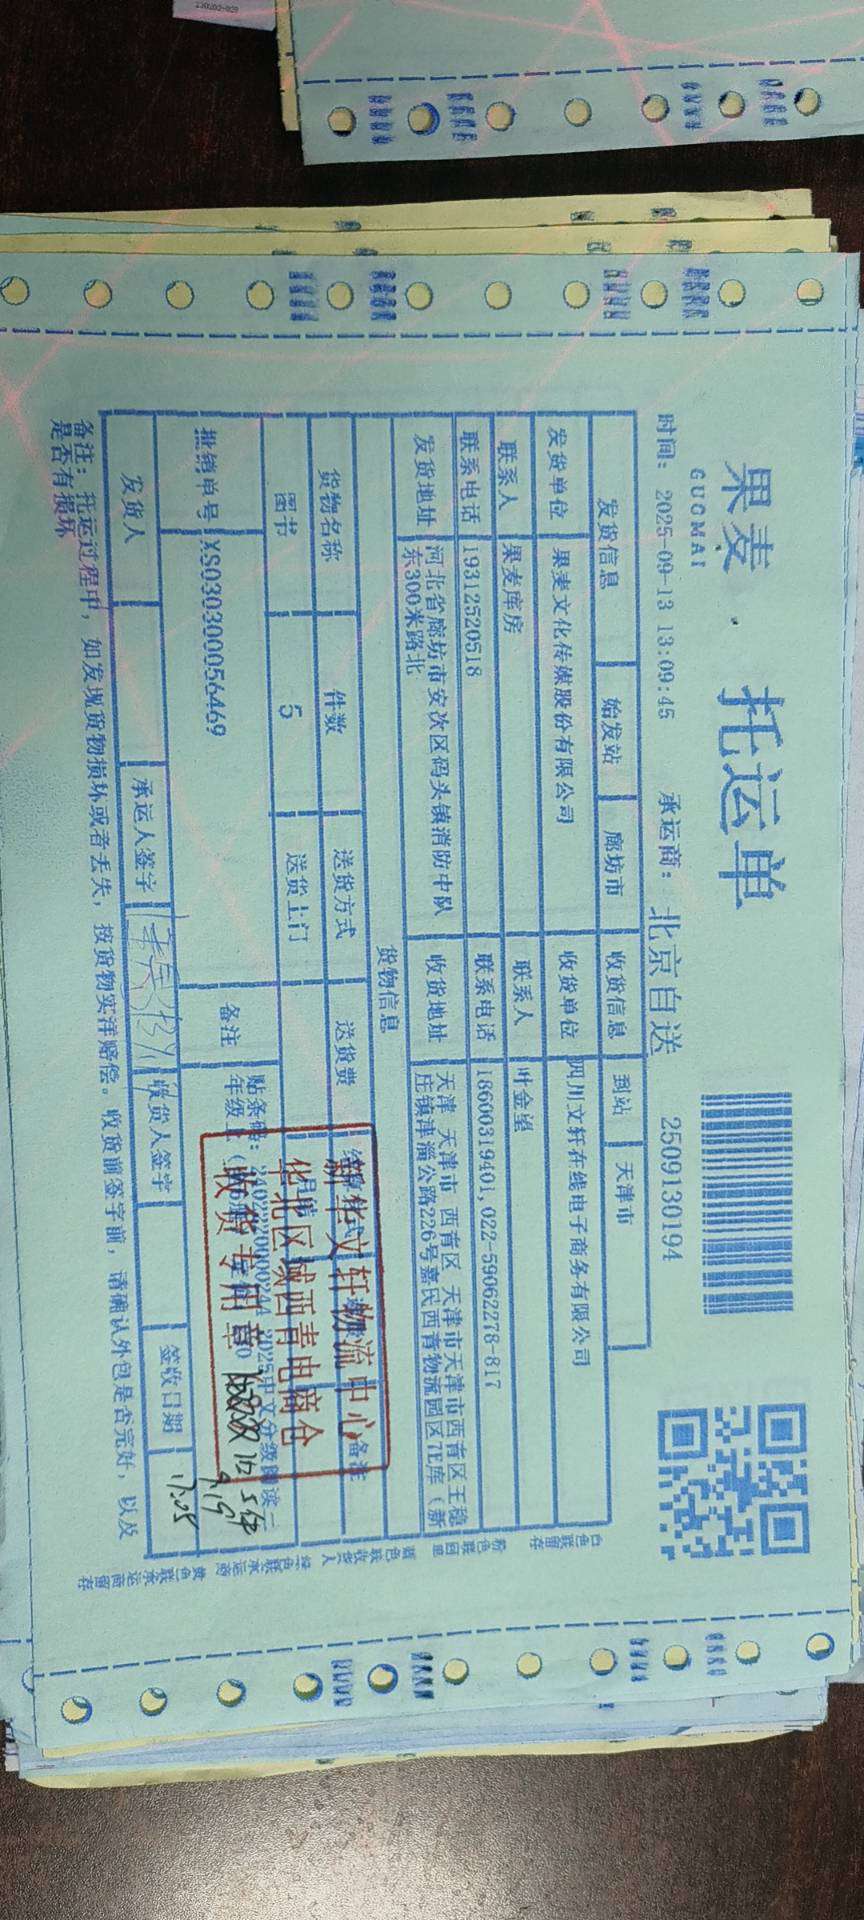 果麦 · 托运单
GUOMAI
时间：2025-09-13 13:09:45 承运商：北京自送 2509130194
发货信息 始发站 廊坊市 收货信息 到站 天津市
发货单位 果麦文化传媒股份有限公司 收货单位 四川文轩在线电子商务有限公司
联系人 果麦库房 联系人 叶金望
联系电话 19312520518 联系电话 18600319401,022-59062278-817
发货地址 河北省廊坊市安次区码头镇消防中队东300米路北 收货地址 天津 天津市 西青区 天津市天津市西青区王稳庄镇津淄公路226号嘉民西青物流园区7E库（新
货物信息
货物名称 件数 送货方式 送货费 备注
图书 5 送货上门
批销单号 XS030300056469 备注 贴条码： 2025中文分级阅读三年级上
新华文轩物流中心
华北区域西青电商仓
收货专用章
发货人 承运人签字 收货人签字 签收日期
9.19
17:05
备注：托运过程中，如发现货物损坏或者丢失，按货物实洋赔偿。收货前签字前，请确认外包是否完好，以及
是否有损坏
白色联留存 粉色联回单 蓝色联收货人 绿色联承运商 黄色联承运商留存